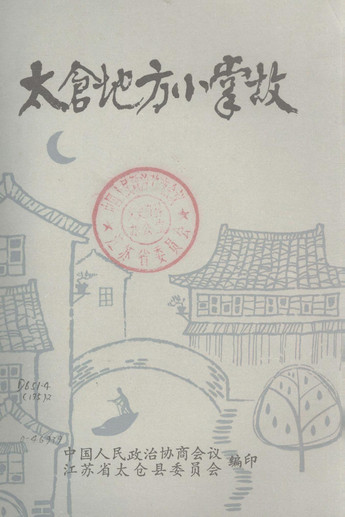 太倉地方小掌故
江苏省委员会
中国人民政治协商会议
江苏省太仓县委员会 编印